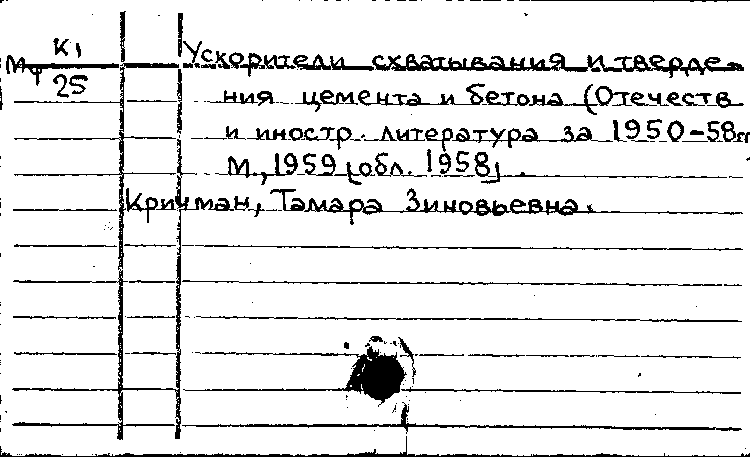 К1
Мф
25
Ускорители схватывания и тверде-
ния цемента и бетона (Отечеств
и иностр. литература за 1950-58гг
М., 1959 [обл. 1958].
Кричман, Тамара Зиновьевна.